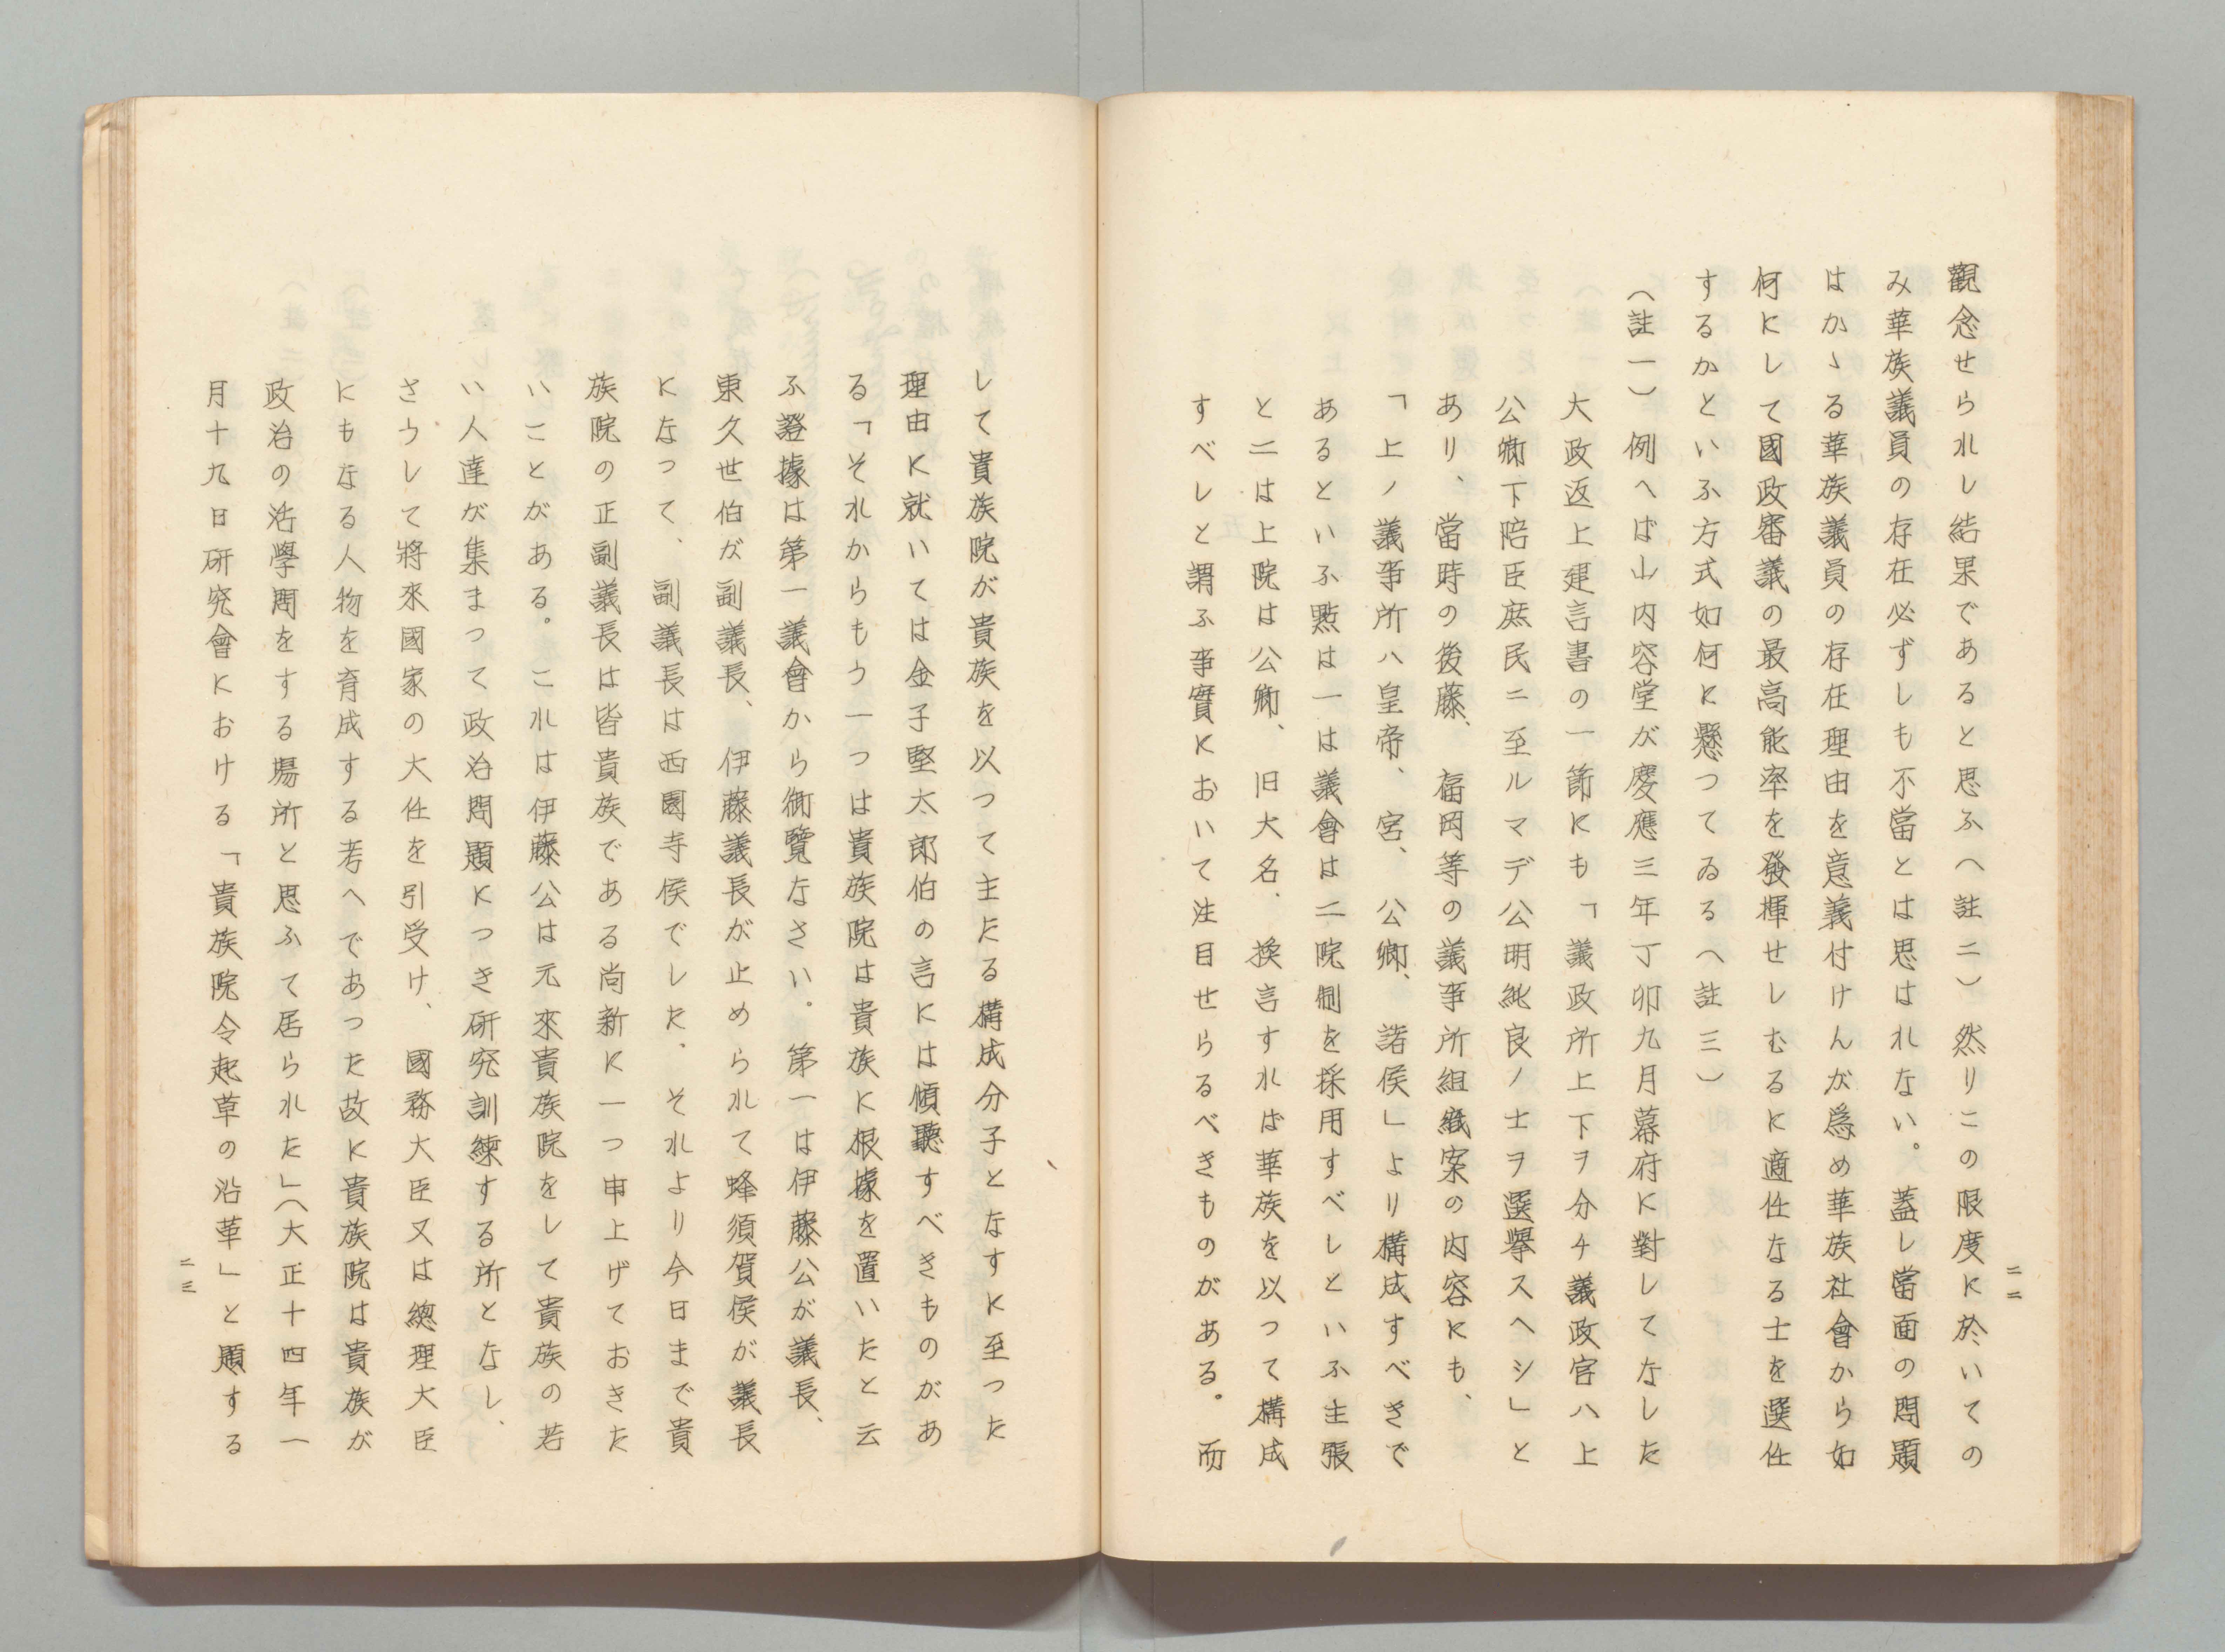 觀念せられし結果であると思ふ（註二）然りこの限度に於いての
み華族議員の存在必ずしも不當とは思はれない。蓋し當面の問題
はかゝる華族議員の存在理由を意義付けんが爲め華族社會から如
何にして國政審議の最高能率を發揮せしむるに適任なる士を選任
するかといふ方式如何に懸つてゐる（註三）
（註一）例へば山内容堂が慶應三年丁卯九月幕府に對してなした
大政返上建言書の一節にも「議政所上下ヲ分チ議政官ハ上
公卿下陪臣庶民ニ至ルマデ公明純良ノ士ヲ選擧スヘシ」と
あり、當時の後藤、福岡等の議事所組織案の内容にも、
「上ノ議事所ハ皇帝、宮、公卿、諸侯」より構成すべきで
あるといふ點は一は議會は二院制を採用すべしといふ主張
と二は上院は公卿、旧大名、換言すれば華族を以つて構成
すべしと謂ふ事實において注目せらるべきものがある。而
二二
して貴族院が貴族を以つて主たる構成分子となすに至つた
理由に就いては金子堅太郎伯の言には傾聽すべきものがあ
る「それからもう一つは貴族院は貴族に根據を置いたと云
ふ證據は第一議會から御覽なさい。第一は伊藤公が議長、
東久世伯が副議長、伊藤議長が止められて蜂須賀侯が議長
になつて、副議長は西園寺侯でした、それより今日まで貴
族院の正副議長は皆貴族である尚新に一つ申上げておきた
いことがある。これは伊藤公は元來貴族院をして貴族の若
い人達が集まつて政治問題につき研究訓練する所となし、
さうして將來國家の大任を引受け、國務大臣又は總理大臣
にもなる人物を育成する考へであつた故に貴族院は貴族が
政治の活學問をする場所と思ふて居られた」（大正十四年一
月十九日研究會における「貴族院令起草の沿革」と題する
二三